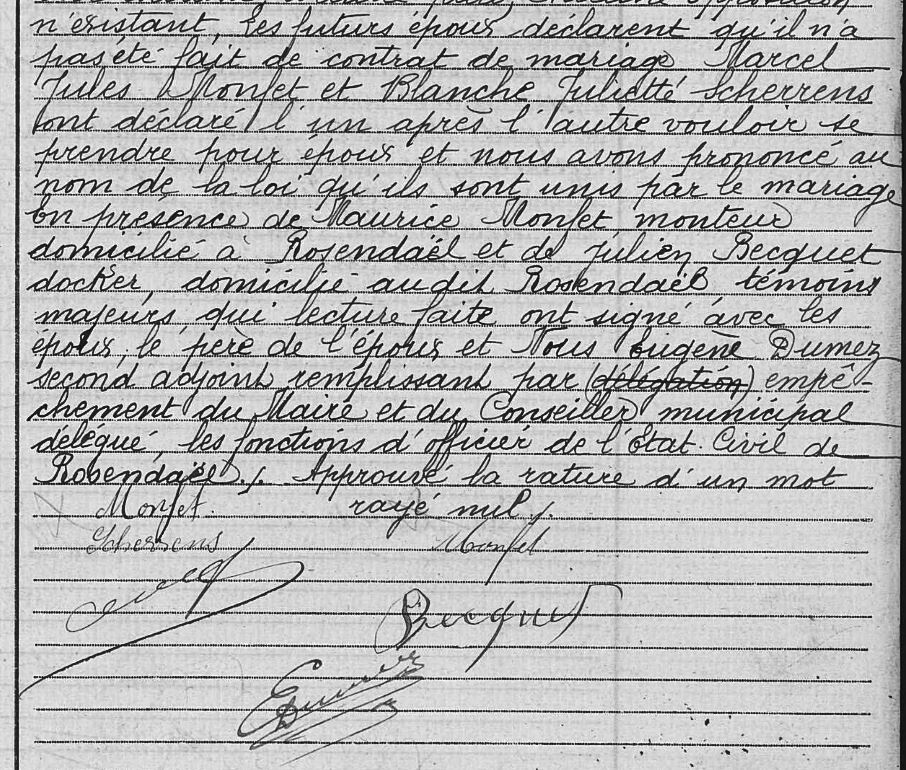 opposition
n'existant, les futurs époux déclarent qu'il n'a
pas été fait de contrat de mariage Marcel
Jules Monfet et Blanche Juliette Scherrens
ont déclaré l'un après l'autre vouloir se
prendre pour époux et nous avons prononcé au
nom de la loi qu'ils sont unis par le mariage
En présence de Maurice Monfet, monteur
domicilié à Rosendaël et de Julien Becquet
docker, domicilié audit Rosendaël, témoins
majeurs, qui lecture faite ont signé avec les
époux, le père de l'époux et Nous Eugène Dumez
second adjoint remplissant par (délégation) empê-
chement du Maire et du Conseiller municipal
délégué, les fonctions d'officier de l'Etat-Civil de
Rosendaël ./. Approuvé la rature d'un mot
rayé nul ./.
Monfet
Scherrens
Monfet
Becquet
EDumez